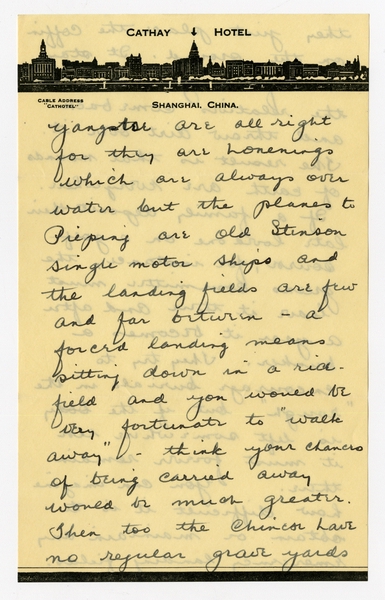 CATHAY HOTEL
CABLE ADDRESS
"CATHOTEL"
SHANGHAI, CHINA.
Yangtse are all right
for they are Lonenings
which are always over
water but the planes to
Pieping are old Stinson
single motor ships and
the landing fields are few
and far between - a
forced landing means
sitting down in a rice-
field and you would be
very fortunate to "walk
away" - think your chances
of being carried away
would be much greater.
Then too the Chinese have
no regular grave yards